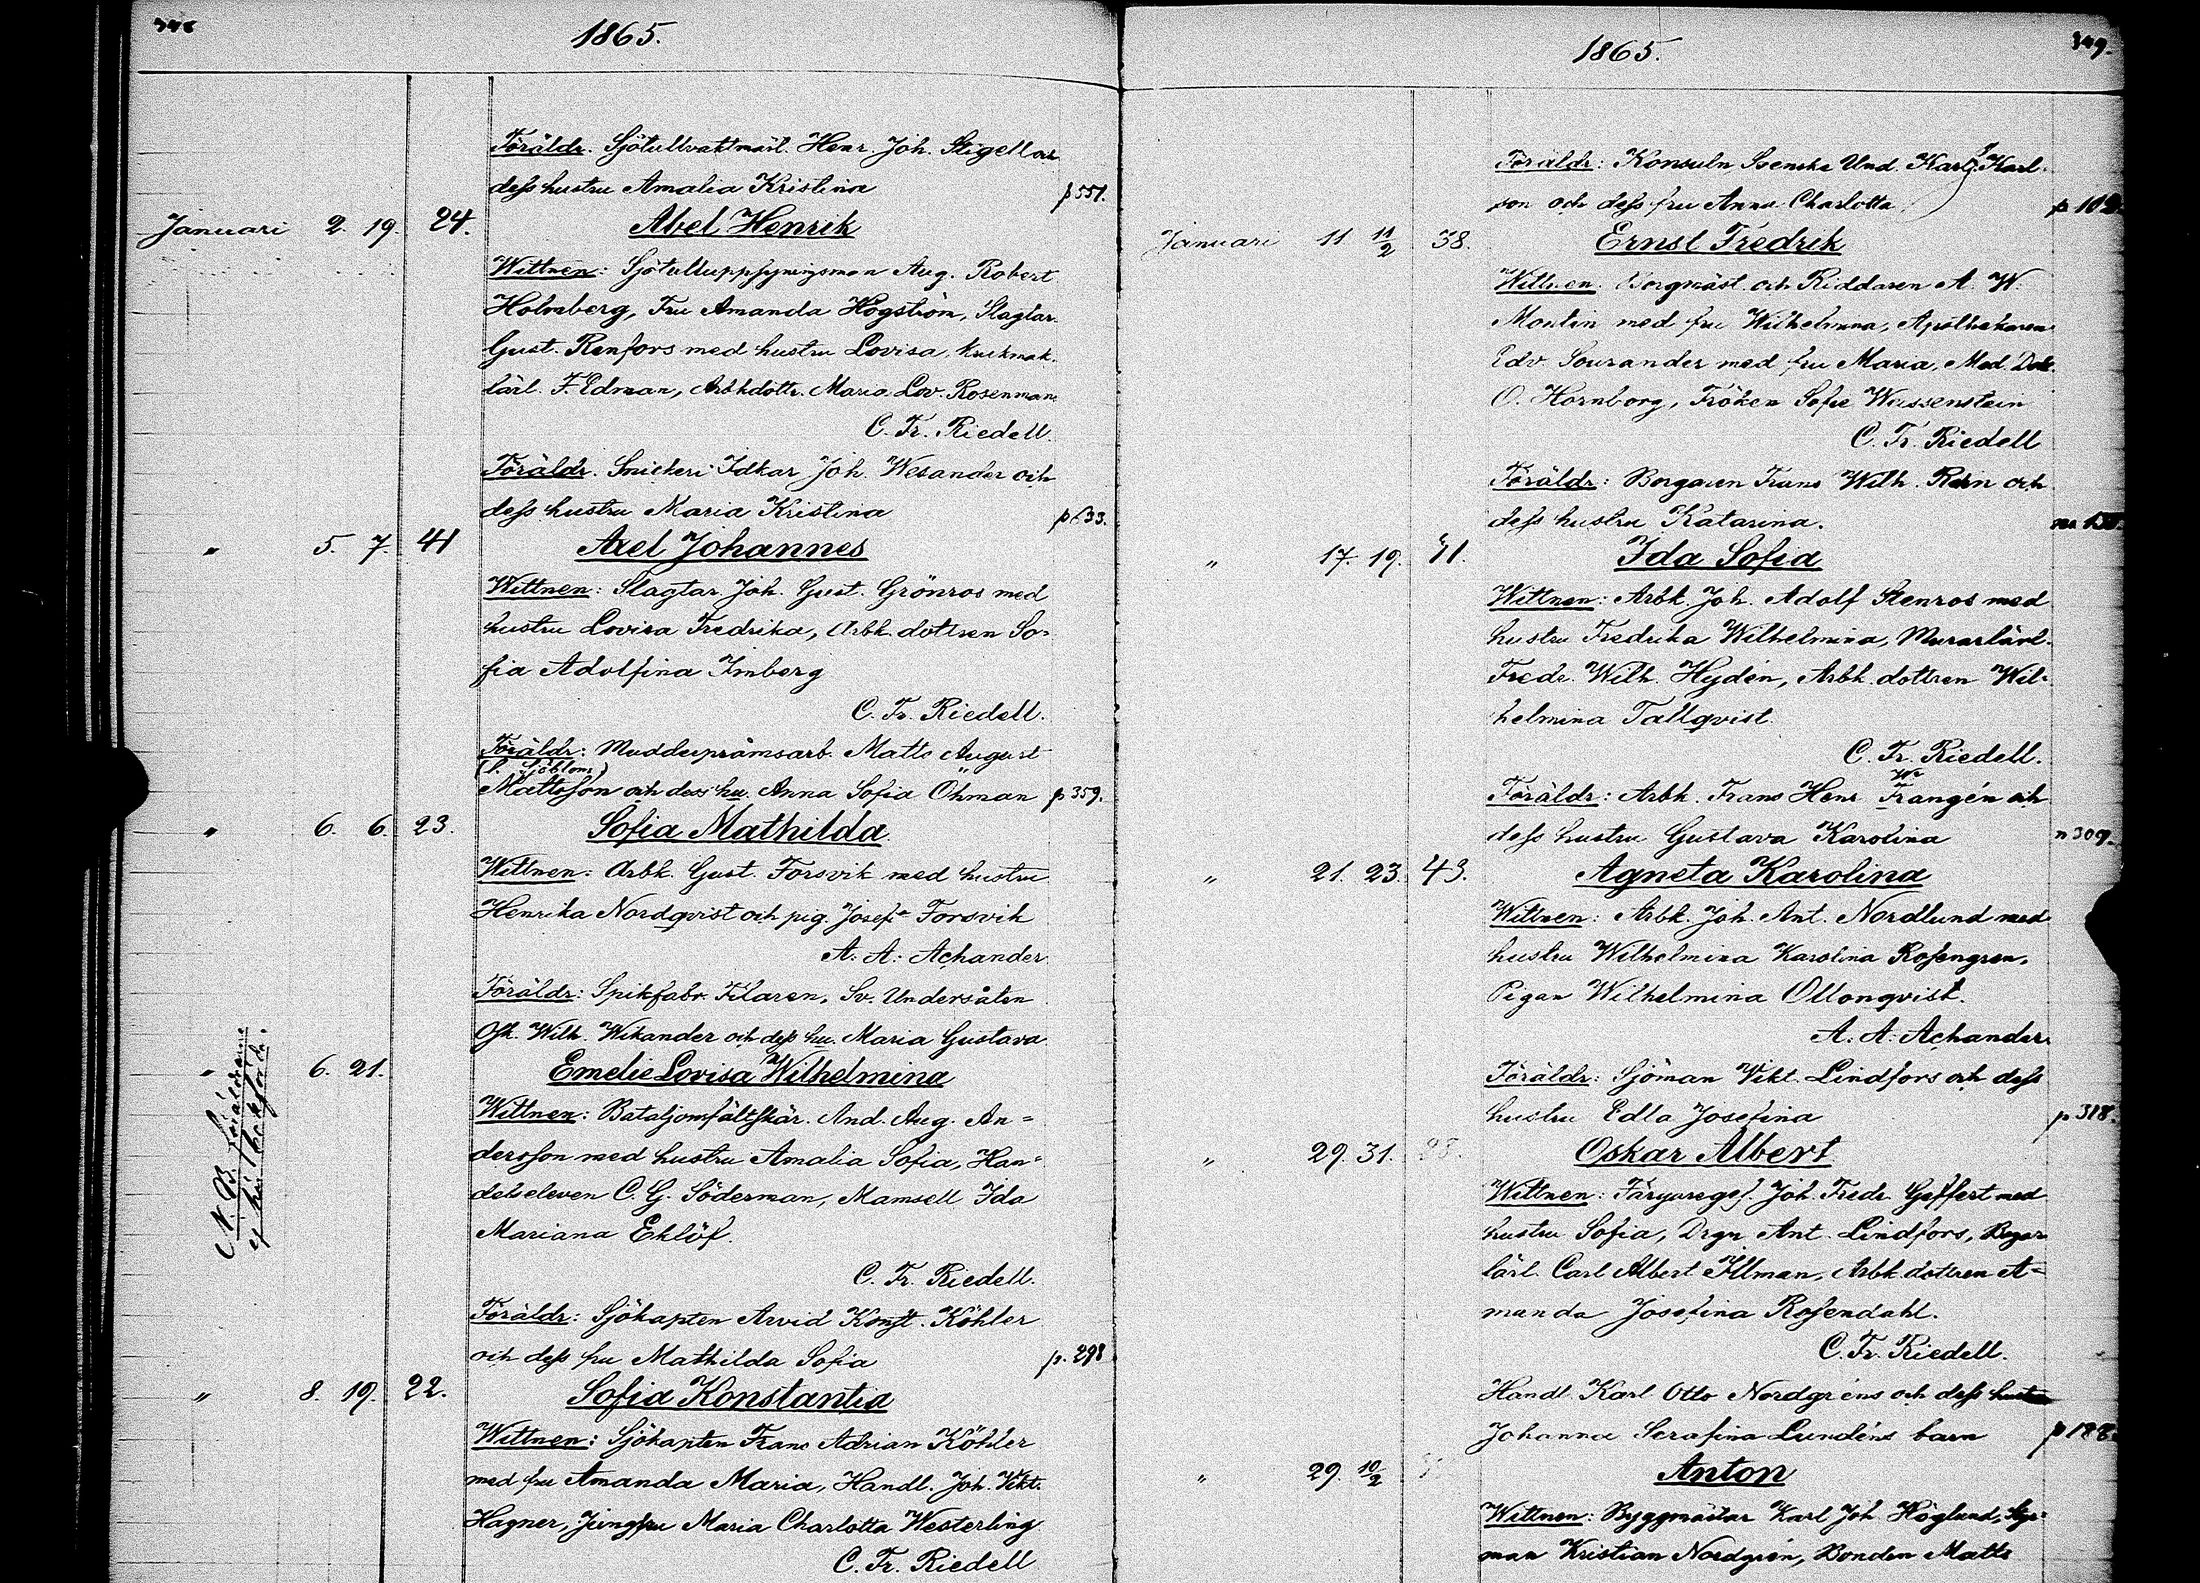 1865.
Föräldr. Sjötullvaktmäst. Henr. Joh. Stigell och
dess hustru Amalia Kristina p 551.
Januari 2. 19. 24. Abel Henrik
Wittnen: Sjötulluppsyningsman Aug. Robert
Holmberg, Fru Amanda Högström, Slagtar.
Gust. Renfors med hustru Lovisa, Krukmak.
lärl. F. Edman, Arbkdottr. Maria Lov. Rosenman.
C. Fr. Riedell.
Föräldr. Snickeri Idkar Joh. Wesander och
dess hustru Maria Kristina p 633.
" 5. 7. 41 Axel Johannes
Wittnen: Slagtar. Joh. Gust. Grönros med
hustru Lovisa Fredrika, Arbk. dottren So-
fia Adolfina Imberg
C. Fr. Riedell.
Föräldr: Mudderpråmsarb. Matts August
(l. Sjöblom)
Mattsson och dess hu. Anna Sofia Öhman p 359.
" 6. 6. 23. Sofia Mathilda
Wittnen: Arbk. Gust. Forsvik med hustru
Henrika Nordqvist och pig. Josefa Forsvik
A. A. Achander
Föräldr: Spikfabr. Filaren, Sv. Undersåten
Osk. Wilh. Wikander och dess hu. Maria Gustava
" 6. 21. Emelie Lovisa Wilhelmina
N. B. Föräldrarne
ej här
Wittnen: Bataljonsfältskär. And. Aug. An=
dersson med hustru Amalia Sofia, Han=
delseleven C. G. Söderman, Mamsell Ida
Mariana Eklöf.
C. Fr. Riedell.
Föräldr: Sjökapten Arvid Konst. Köhler
och dess fru Mathilda Sofia p. 298
" 8. 19. 22. Sofia Konstantia
Wittnen: Sjökapten Frans Adrian Köhler
med fru Amanda Maria, Handl. Joh. Vikt.
Hagner, Jungfru Maria Charlotta Westerling
C. Fr. Riedell
1865. 349.
Föräldr: Konsuln Svenske Und. Karl J. Karl-
son och dess fru Anna Charlotta p 102.
Januari 11. 11/2 38. Ernst Fredrik
Wittnen. Borgmäst. och Riddaren A. W.
Montin med fru Wilhelmina, Apothekaren
Edv. Sourander med fru Maria, Med. Dok.
O. Hornborg, Fröken Sofie Weissenstein
C. Fr. Riedell
Föräldr: Borgaren Frans Wilh. Rén och
dess hustru Katarina.
" 17. 19. 41. Ida Sofia
Wittnen: Arbk. Joh. Adolf Stenros med
hustru Fredrika Wilhelmina, Murarlärl.
Fredr. Wilh. Hydén, Arbk. dottren Wil-
helmina Tallqvist
C. Fr. Riedell.
Föräldr: Arbk. Frans Henr. Frangén och
dess hustru Gustava Karolina 309.
" 21. 23. 43. Agneta Karolina
Wittnen: Arbk. Joh. Ant. Nordlund med
hustru Wilhelmina Karolina Rosengren,
Pigan Wilhelmina Ollonqvist.
A. A. Achander.
Föräldr: Sjöman Vikt. Lindfors och dess
hustru Edla Josefina p. 318.
" 29. 31. Oskar Albert
Wittnen: Färgareges. Joh. Fredr. Geffert med
hustru Sofia, Drgn Ant. Lindfors, Bagar
lärl. Carl Albert Illman, Arbk. dottren A=
manda Josefina Rosendahl.
C. Fr. Riedell.
Handl. Karl Otto Nordgréns och dess hustru
Johanna Serafina Lundéns barn p 188.
" 29. 10/2 Anton
Wittnen: Byggmästar Karl Joh. Höglund, Styr-
man Kristian Nordgrén, Bonden Matts